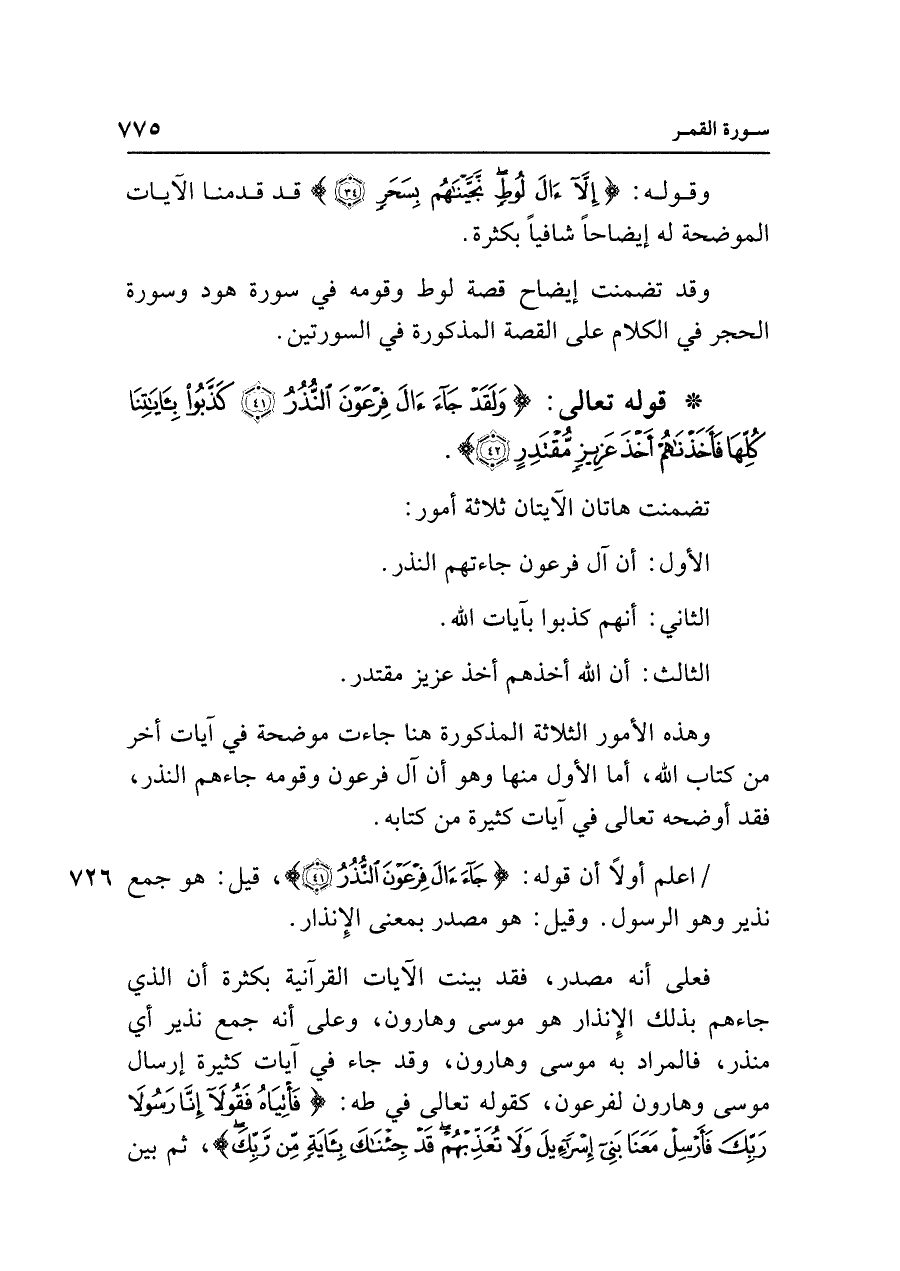 سورة القمر ٧٧٥
وقوله: ﴿ إِلَّآ ءَالَ لُوطٖۖ نَّجَّيْنَٰهُم بِسَحَرٖ ٣٤ ﴾ قد قدمنا الآيات
الموضحة له إيضاحاً شافياً بكثرة.
وقد تضمنت إيضاح قصة لوط وقومه في سورة هود وسورة
الحجر في الكلام على القصة المذكورة في السورتين.
* قوله تعالى: ﴿ وَلَقَدْ جَآءَ ءَالَ فِرْعَوْنَ ٱلنُّذُرُ ٤١ كَذَّبُواْ بِـَٔايَٰتِنَا
كُلِّهَا فَأَخَذْنَٰهُمْ أَخْذَ عَزِيزٖ مُّقْتَدِرٍ ٤٢ ﴾.
تضمنت هاتان الآيتان ثلاثة أمور:
الأول: أن آل فرعون جاءتهم النذر.
الثاني: أنهم كذبوا بآيات الله.
الثالث: أن الله أخذهم أخذ عزيز مقتدر.
وهذه الأمور الثلاثة المذكورة هنا جاءت موضحة في آيات أخر
من كتاب الله، أما الأول منها وهو أن آل فرعون وقومه جاءهم النذر،
فقد أوضحه تعالى في آيات كثيرة من كتابه.
/ اعلم أولاً أن قوله: ﴿ جَآءَ ءَالَ فِرْعَوْنَ ٱلنُّذُرُ ٤١ ﴾، قيل: هو جمع ٧٢٦
نذير وهو الرسول. وقيل: هو مصدر بمعنى الإِنذار.
فعلى أنه مصدر، فقد بينت الآيات القرآنية بكثرة أن الذي
جاءهم بذلك الإِنذار هو موسى وهارون، وعلى أنه جمع نذير أي
منذر، فالمراد به موسى وهارون، وقد جاء في آيات كثيرة إرسال
موسى وهارون لفرعون، كقوله تعالى في طه: ﴿ فَأْتِيَاهُ فَقُولَآ إِنَّا رَسُولَا
رَبِّكَ فَأَرْسِلْ مَعَنَا بَنِىٓ إِسْرَٰٓءِيلَ وَلَا تُعَذِّبْهُمْۖ قَدْ جِئْنَٰكَ بِـَٔايَةٖ مِّن رَّبِّكَۖ ﴾، ثم بين